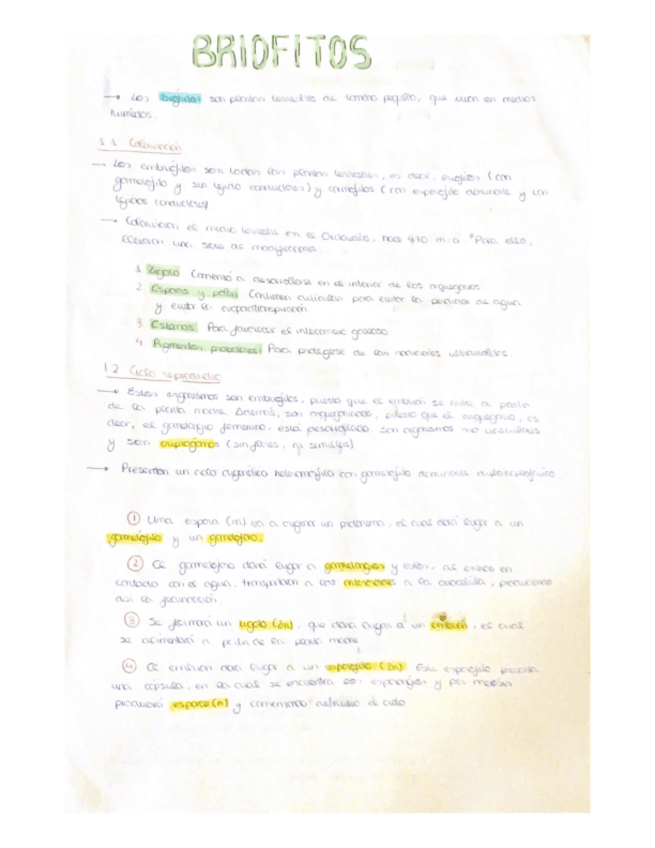 BRIOFITOS
→ Los briofitos son plantas terrestres de tamaño pequeño, que viven en medios
húmedos.
1.1. Colonización
→ Los embriofitos son todas las plantas terrestres, es decir, briofitos (con
gametofito y sin tejido conductores) y cormofitos (con esporofito dominante y con
tejidos conductores)
→ Colonizaron el medio terrestre en el Ordovícico, hace 470 m.a. Para ello,
llevaron una serie de modificaciones.
1. Zigoto Comenzó a desarrollarse en el interior de los arquegonios
2. Esporas y polen Contienen cutículas para evitar la pérdida de agua
y evitar la evapotranspiración.
3. Estomas Para favorecer el intercambio gaseoso
4. Pigmentos protectores Para protegerse de las radiaciones ultravioletas
1.2 Ciclo reproductivo
→ Estos organismos son embriofitos, puesto que el embrión se nutre a partir
de la planta madre. Además, son arquegoniadas, puesto que el arquegonio, es
decir, el gametangio femenino, está desarrollado son organismos no vasculares
y son criptógamos (sin flores, ni semillas)
→ Presentan un ciclo digenético heteromórfico con gametofito dominante
① Una espora (n) va a originar un protonema, el cual dará lugar a un
gametofito y un gametóforo.
② El gametóforo dará lugar a gametangios y estos, al entrar en
contacto con el agua, transportarán a los anterozoides a la ovocélula, produciendo
así la fecundación.
③ Se formará un zigoto (2n), que dará lugar a un embrión, el cual
se alimentará a partir de la planta madre
④ El embrión dará lugar a un esporofito (2n). Este esporofito presenta
una cápsula, en la cual se encuentra los esporangios y por meiosis
producirá esporas (n) y comenzando el ciclo